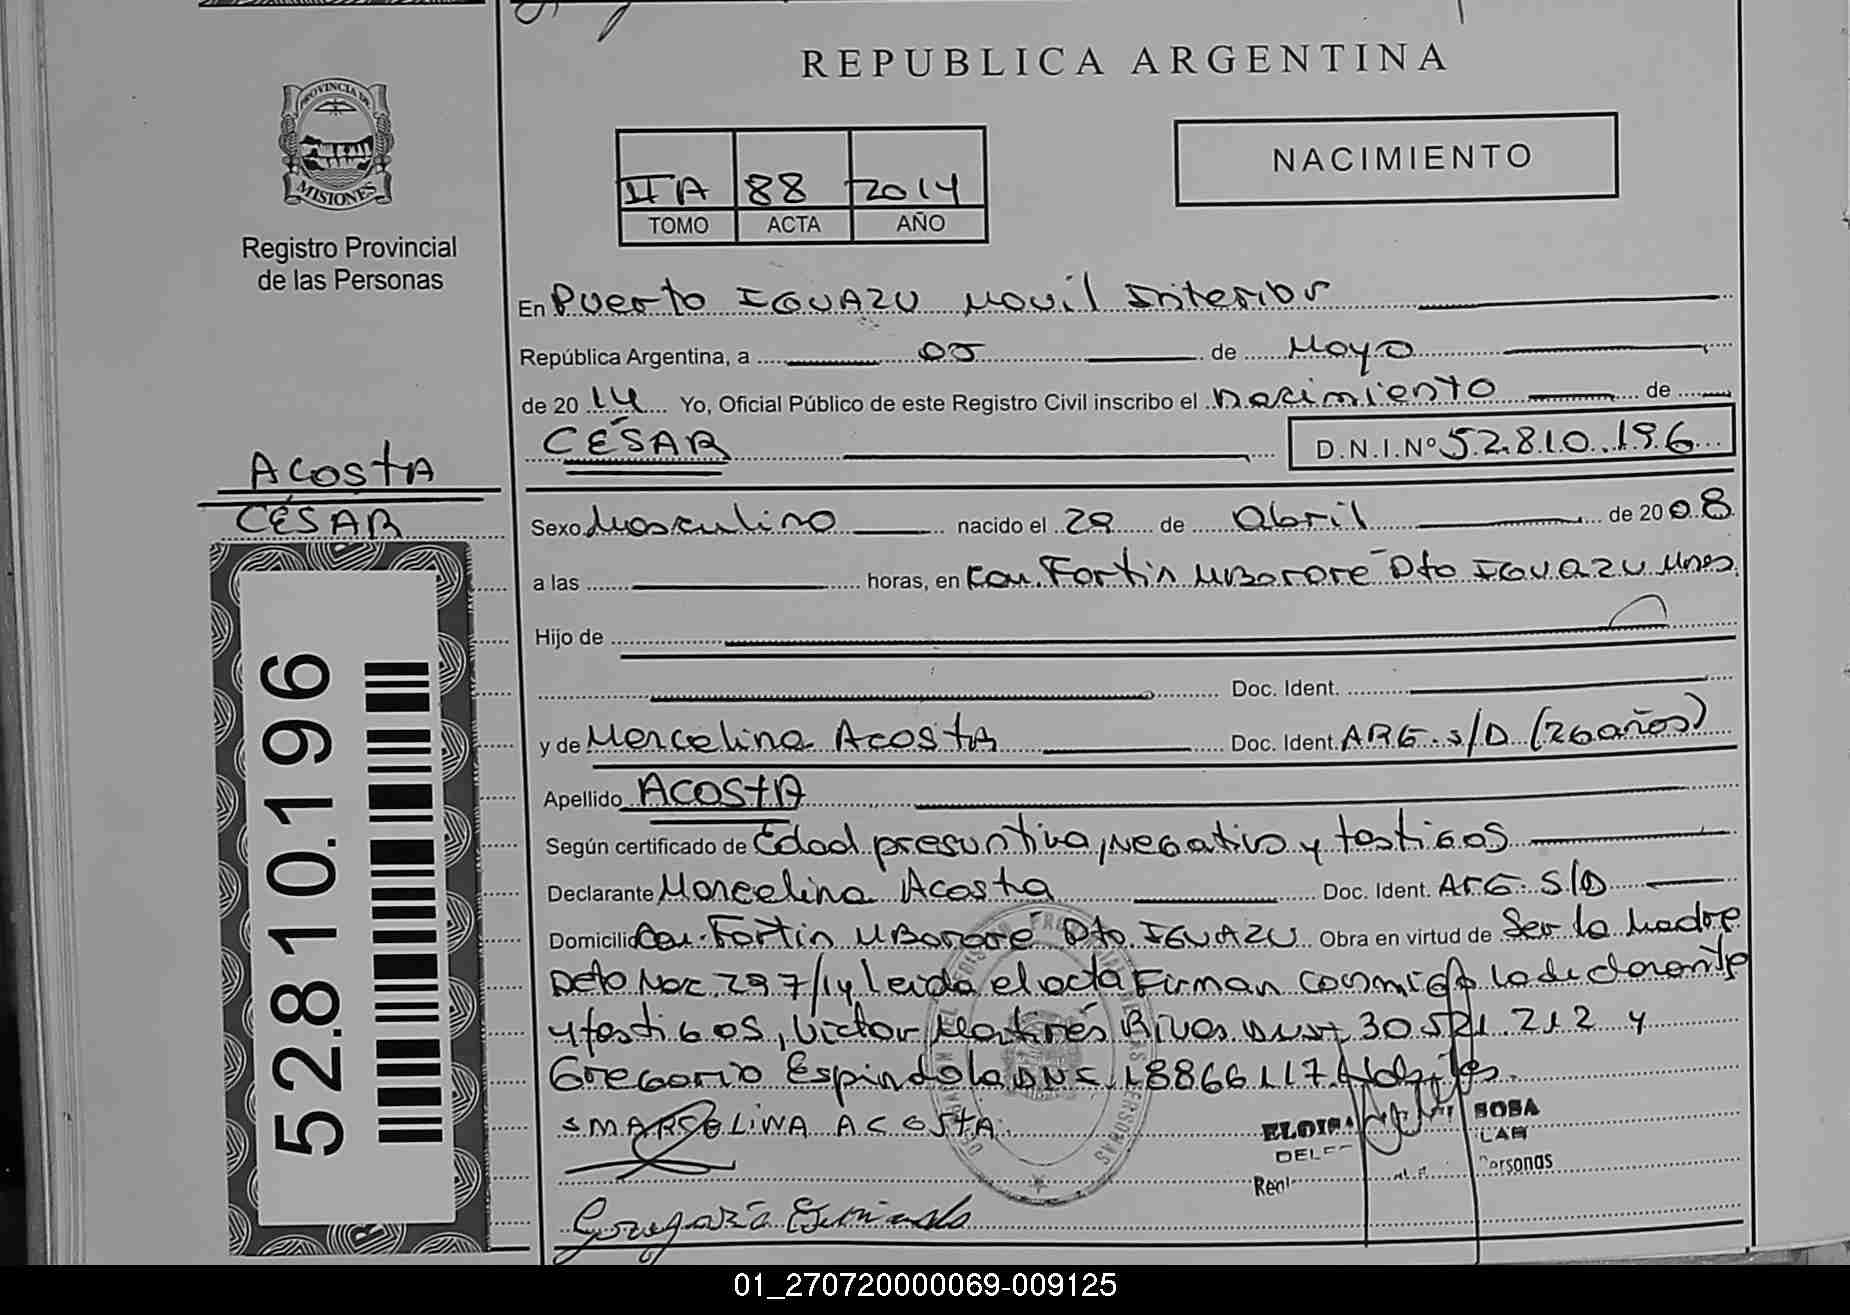 REPUBLICA ARGENTINA
PROVINCIA DE
MISIONES
Registro Provincial
de las Personas
NACIMIENTO
IIA 88 2014
TOMO ACTA AÑO
En Puerto IGUAZU Movil Interior
República Argentina, a 05 de Mayo
de 2014 Yo, Oficial Público de este Registro Civil inscribo el nacimiento de
CÉSAR D.N.I.Nº 52.810.196
ACOSTA
CÉSAR
Sexo Masculino nacido el 29 de abril de 2008
a las horas, en Com. Fortin MBororé Dto IGUAZU Mnes
Hijo de
Doc. Ident.
y de Marcelina Acosta Doc. Ident. ARG. S/D (26 años)
Apellido ACOSTA
Según certificado de Edad presuntiva, Negativo y testigos
Declarante Marcelina Acosta Doc. Ident. ARG. S/D
Domicilio Com. Fortin MBororé Dto. IGUAZU Obra en virtud de Ser la Madre
Dcto Nac. 297/14 leida el acta Firman conmigo la declarante
y testigos, Victor Rivas 30.521.212 y
Gregorio Espindola DNI. 18866117. Habiles.
MARSELINA ACOSTA
ELOISA SOSA
Personas
52.810.196
01_270720000069-009125